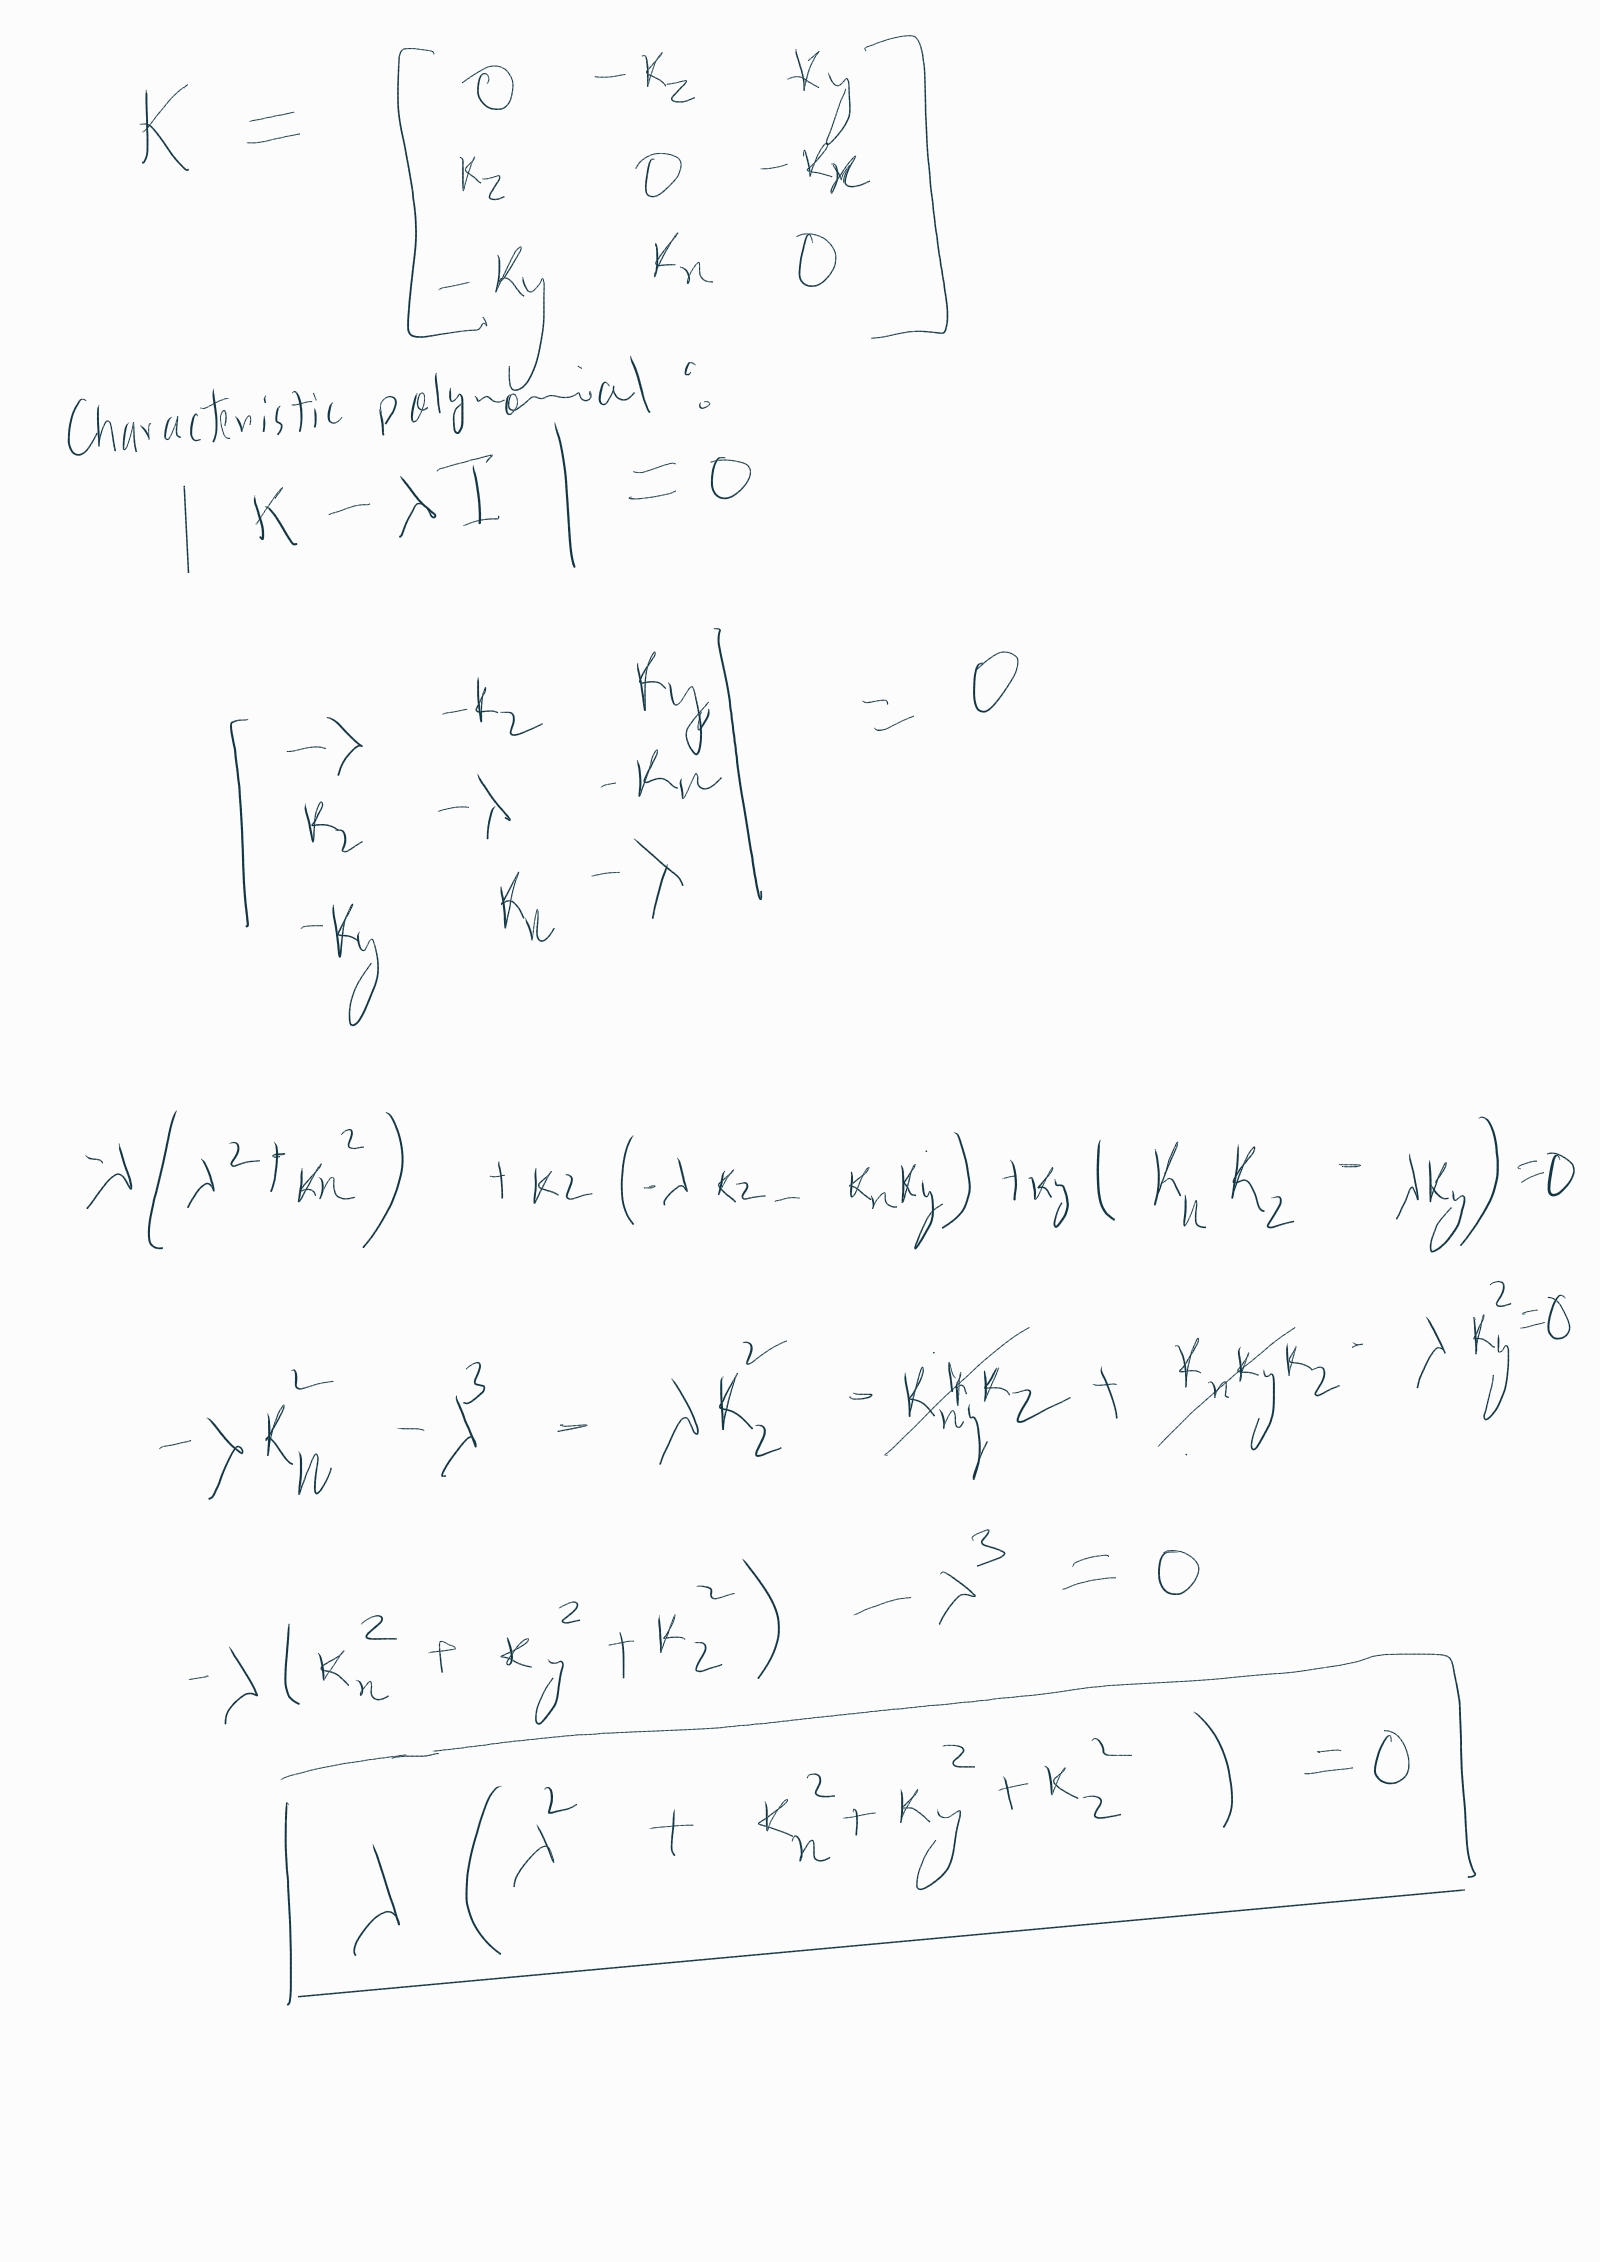 K = [ 0 -Kz Ky
Kz 0 -Kx
-Ky Kx 0 ]
Characteristic polynomial :
| K - λI | = 0
| -λ -Kz Ky | = 0
Kz -λ -Kx
-Ky Kx -λ
-λ(λ² + Kx²) + Kz(-λKz - KxKy) + Ky(KxKz - λKy) = 0
-λKx² - λ³ - λKz² - KxKyKz + KxKyKz - λKy² = 0
-λ(Kx² + Ky² + Kz²) - λ³ = 0
λ(λ² + Kx² + Ky² + Kz²) = 0